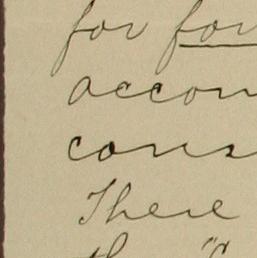 for for
accom
cons
There